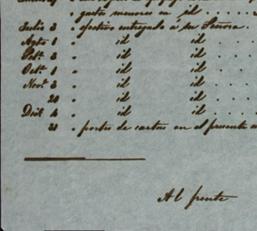 gastos menores en id . . . .
Julio 3 " efectivo entregado a su Señora .
Agto 1 " id id . . .
Set. 3 " id id . . .
Oct. 1 " id id . . .
Nov. 3 " id id . . .
20 " id id . . .
Dic. 4 " id id . . .
31 " portes de cartas en el presente a
Al frente